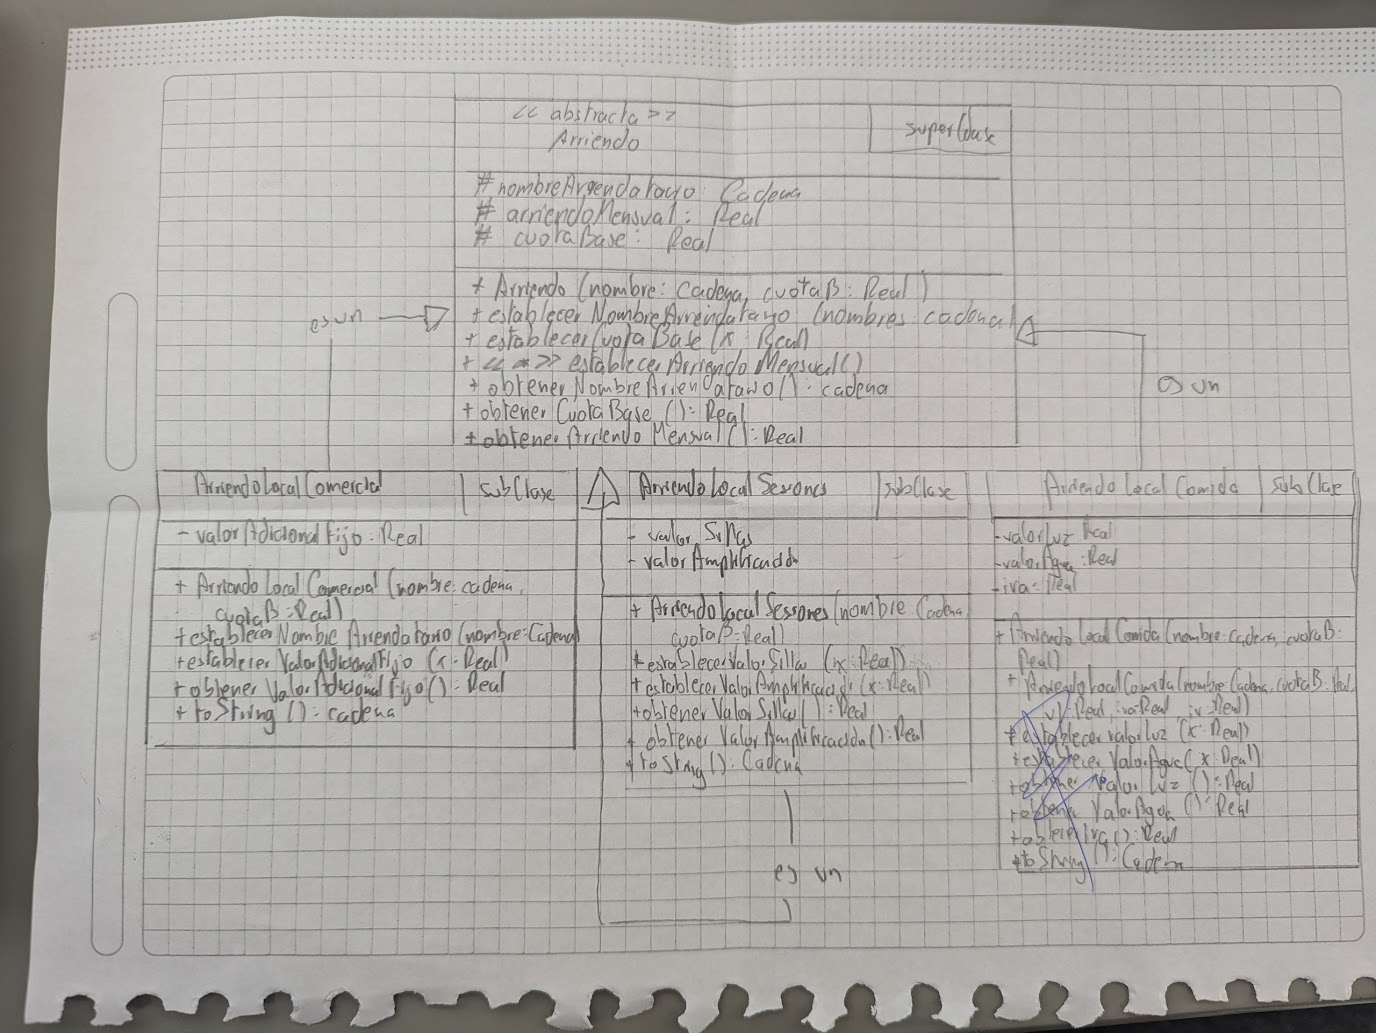 << abstracta >>
Arriendo
superClase
# nombreArrendatario: Cadena
# arriendoMensual: Real
# cuotaBase: Real
+ Arriendo (nombre: cadena, cuotaB: Real)
+ establecer NombreArrendatario (nombres: cadena)
+ establecerCuotaBase (x: Real)
+ << * >> establecerArriendo Mensual()
+ obtener Nombre Arrendatario(): cadena
+ obtener CuotaBase (): Real
+ obtener Arriendo Mensual(): Real
es un
es un
ArriendoLocalComercial
subClase
- valorAdicionalFijo: Real
+ Arriendo Local Comercial (nombre: cadena,
cuotaB: Real)
+ establecer Nombre Arrendatario (nombre: Cadena)
+ establecer ValorAdicionalFijo (x: Real)
+ obtener ValorAdicionalFijo(): Real
+ toString (): cadena
Arriendo Local Sesiones
subClase
- valor Sillas
- valorAmplificación
+ ArriendoLocalSesiones (nombre Cadena,
cuotaB: Real)
+ establecerValorSillas (x: Real)
+ establecerValorAmplificación (x: Real)
+ obtener ValorSillas(): Real
+ obtener ValorAmplificación(): Real
+ toString(): Cadena
es un
Arriendo Local Comida
subClase
- valorLuz Real
- valorAgua: Real
- iva: Real
+ Arriendo Local Comida (nombre: cadena, cuotaB:
Real)
+ ArriendoLocalComida (nombre: Cadena, cuotaB: Real,
Real, Real Real)
+ establecer valorLuz (x: Real)
+ establecer ValorAgua (x: Real)
+ obtener Valor Luz (): Real
+ obtener ValorAgua (): Real
+ obtener Iva(): Real
+ toString (): Cadena